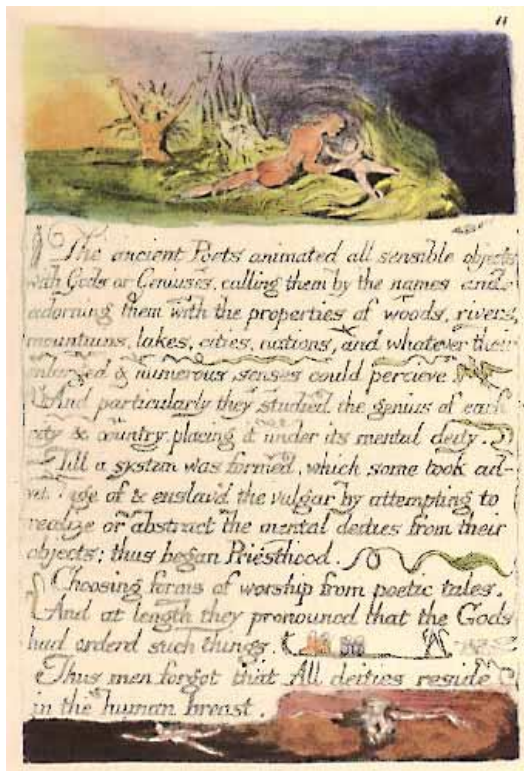 11
The ancient Poets animated all sensible objects
with Gods or Geniuses, calling them by the names and
adorning them with the properties of woods, rivers,
mountains, lakes, cities, nations, and whatever their
enlarged & numerous senses could percieve.
And particularly they studied the genius of each
city & country, placing it under its mental deity.
Till a system was formed, which some took ad-
vantage of & enslav'd the vulgar by attempting to
realize or abstract the mental deities from their
objects; thus began Priesthood.
Choosing forms of worship from poetic tales.
And at length they pronouncd that the Gods
had orderd such things.
Thus men forgot that All deities reside
in the human breast.